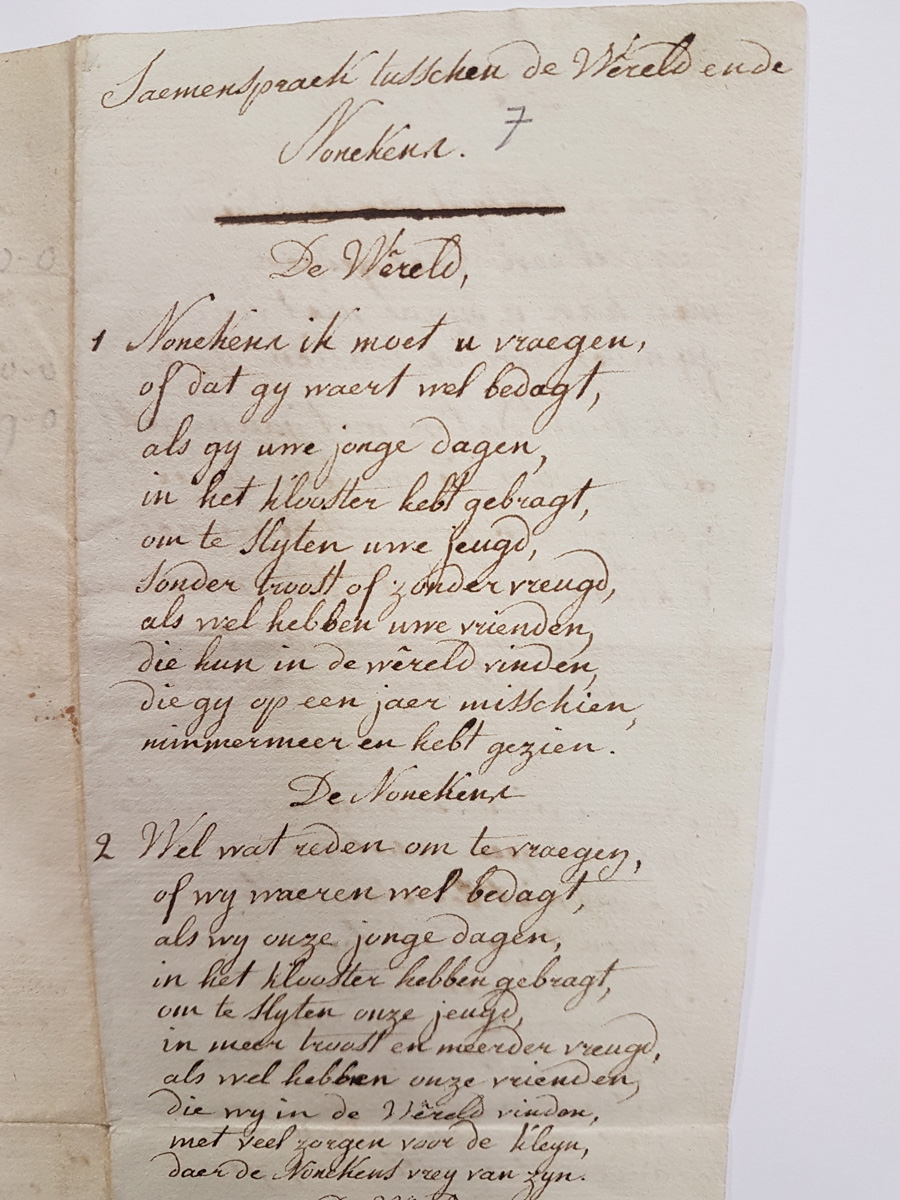 Saemenspraek tusschen de Wêreld ende
Nonekens. 7
De Wêreld,
1 Nonekens ik moet u vraegen,
of dat gy waert wel bedagt,
als gy uwe jonge dagen,
in het klooster hebt gebragt,
om te slyten uwe jeugd,
sonder troost of zonder vreugd,
als wel hebben uwe vrienden,
die hun in de wêreld vinden,
die gy op een jaer misschien,
nimmermeer en hebt gezien.
De Nonekens
2 Wel wat reden om te vraegen,
of wy waeren wel bedagt,
als wy onze jonge dagen,
in het klooster hebben gebragt,
om te slyten onze jeugd,
in meer troost en meerder vreugd,
als wel hebben onze vrienden,
die wy in de Wêreld vinden,
met veel zorgen voor de kleyn,
daer de Nonekens vrey van zyn.